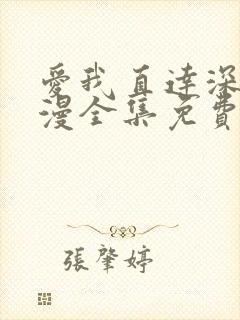 愛我直達深
漫全集免費
張肇婷